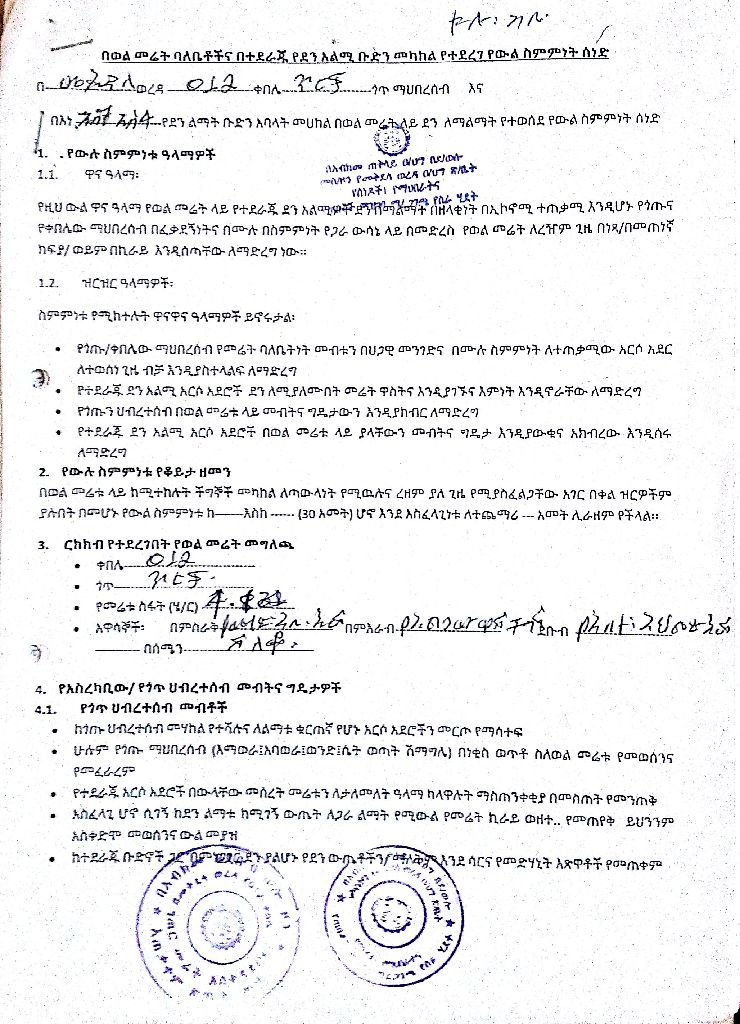 በወል መሬት ባለቤቶችና በተደራጁ የደን አልሚ ቡድን መካከል የተደረገ የውል ስምምነት ሰነድ
በ ወረዳ 012 ቀበሌ ጎጥ ማህበረሰብ እና
በእነ የደን ልማት ቡድን አባላት መሀከል በወል መሬት ላይ ደን ለማልማት የተወሰደ የውል ስምምነት ሰነድ
1. . የውሉ ስምምነቱ ዓላማዎች
1.1. ዋና ዓላማ፡
የዚህ ውል ዋና ዓላማ የወል መሬት ላይ የተደራጁ ደን አልሚዎች ደን በማልማት በዘላቂነት በኢኮኖሚ ተጠቃሚ እንዲሆኑ የጎጡና
የቀበሌው ማህበረሰብ በፈቃደኝነትና በሙሉ በስምምነት የጋራ ውሳኔ ላይ በመድረስ የወል መሬት ለረዥም ጊዜ በነጻ/በመጠነኛ
ክፍያ/ ወይም በኪራይ እንዲሰጣቸው ለማድረግ ነው።
1.2. ዝርዝር ዓላማዎች፡
ስምምነቱ የሚከተሉት ዋናዋና ዓላማዎች ይኖሩታል፡
• የጎጡ/ቀበሌው ማህበረሰብ የመሬት ባለቤትነት መብቱን በህጋዊ መንገድና በሙሉ ስምምነት ለተጠቃሚው አርሶ አደር
ለተወሰነ ጊዜ ብቻ እንዲያስተላልፍ ለማድረግ
• የተደራጁ ደን አልሚ አርሶ አደሮች ደን ለሚያለሙበት መሬት ዋስትና እንዲያገኙና እምነት እንዲኖራቸው ለማድረግ
• የጎጡን ህብረተሰብ በወል መሬቱ ላይ መብትና ግዴታውን እንዲያከብር ለማድረግ
• የተደራጁ ደን አልሚ አርሶ አደሮች በወል መሬቱ ላይ ያላቸውን መብትና ግዴታ እንዲያውቁና አክብረው እንዲሰሩ
ለማድረግ
2. የውሉ ስምምነቱ የቆይታ ዘመን
በወል መሬቱ ላይ ከሚተከሉት ችግኞች መካከል ለጣውላነት የሚዉሉና ረዘም ያለ ጊዜ የሚያስፈልጋቸው አገር በቀል ዝርዎችም
ያሉበት በመሆኑ የውል ስምምነቱ ከ-------እስከ ------ (30 አመት) ሆኖ እንደ አስፈላጊነቱ ለተጨማሪ --- አመት ሊራዘም የችላል።
3. ርክክብ የተደረገበት የወል መሬት መግለጫ
• ቀበሌ 012
• ጎጥ
• የመሬቱ ስፋት (ሄ/ር)
• አዋሳኞች፡ በምስራት በምእራብ ደቡብ
በሰሜን
4. የአስረካቢው/ የጎጥ ህብረተሰብ መብትና ግዴታዎች
4.1. የጎጥ ህብረተሰብ መብቶች
• ከጎጡ ህብረተሰብ መሃከል የተሻሉና ለልማቱ ቁርጠኛ የሆኑ አርሶ አደሮችን መርጦ የማሳተፍ
• ሁሉም የጎጡ ማህበረሰብ (እማወራ፤አባወራ፤ወንድ፤ሴት ወጣት ሽማግሌ) በነቂስ ወጥቶ ስለወል መሬቱ የመወሰንና
የመፈራረም
• የተደራጁ አርሶ አደሮች በውላቸው መሰረት መሬቱን ለታለመለት ዓላማ ካላዋሉት ማስጠንቀቂያ በመስጠት የመንጠቅ
• አስፈላጊ ሆኖ ሲገኝ ከደን ልማቱ ከሚገኝ ውጤት ለጋራ ልማት የሚውል የመሬት ኪራይ ወዘተ.. የመጠየቅ ይህንንም
አስቀድሞ መወሰንና ውል መያዝ
• ከተደራጁ ቡድኖች ጋር ደን ያልሆኑ የደን ውጤቶችን እንደ ሳርና የመድሃኒት እጽዋቶች የመጠቀም